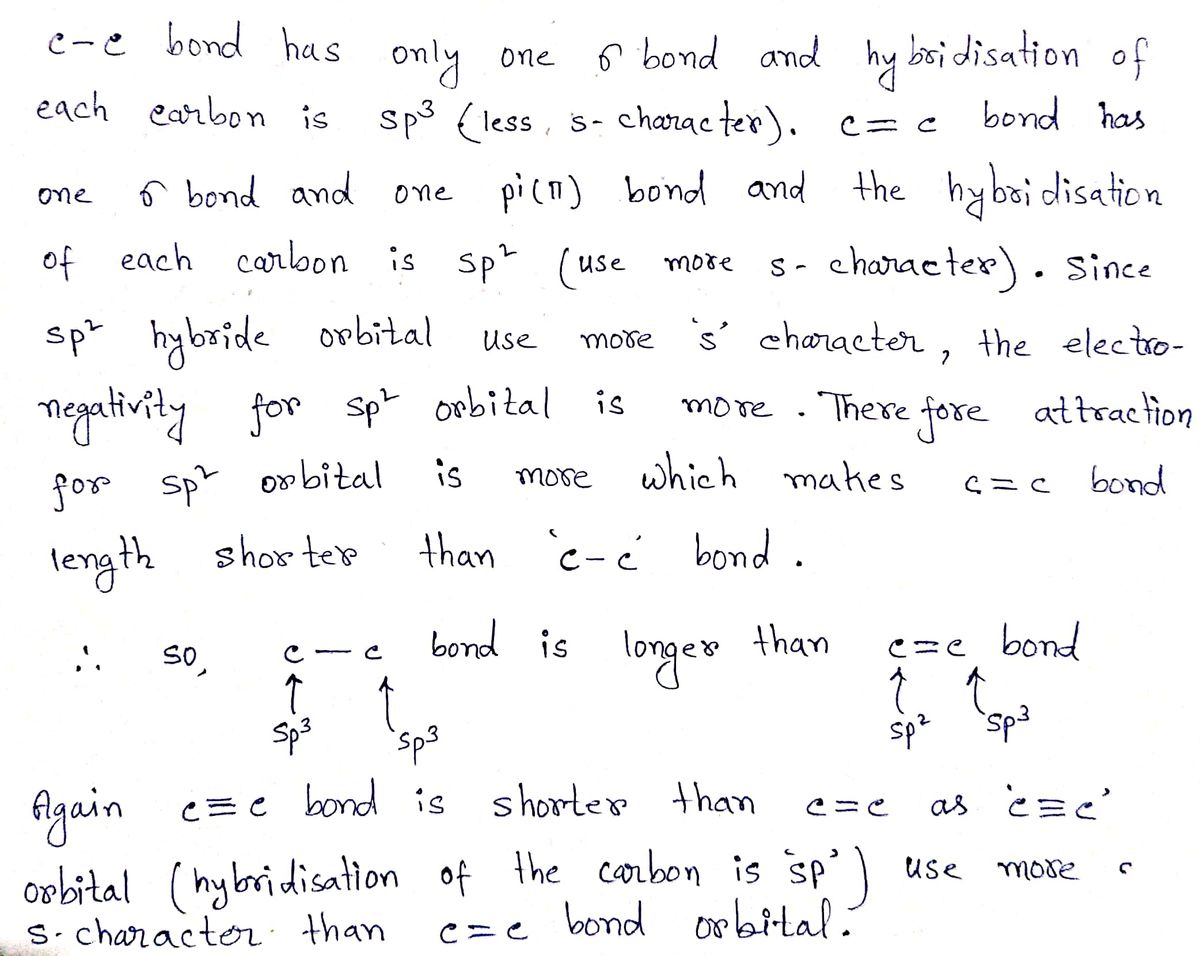 c-c bond has only one σ bond and hybridisation of
each carbon is sp³ (less, s-character). c=c bond has
one σ bond and one pi(π) bond and the hybridisation
of each carbon is sp² (use more s-character). Since
sp² hybride orbital use more 's' character, the electro-
negativity for sp² orbital is more. Therefore attraction
for sp² orbital is more which makes c=c bond
length shorter than 'c-c' bond.
∴ so, c-c bond is longer than c=c bond
↑ ↑ ↑ ↑
sp³ sp³ sp² sp³
Again c≡c bond is shorter than c=c as 'c≡c'
orbital (hybridisation of the carbon is 'sp') use more
s-character than c=c bond orbital.